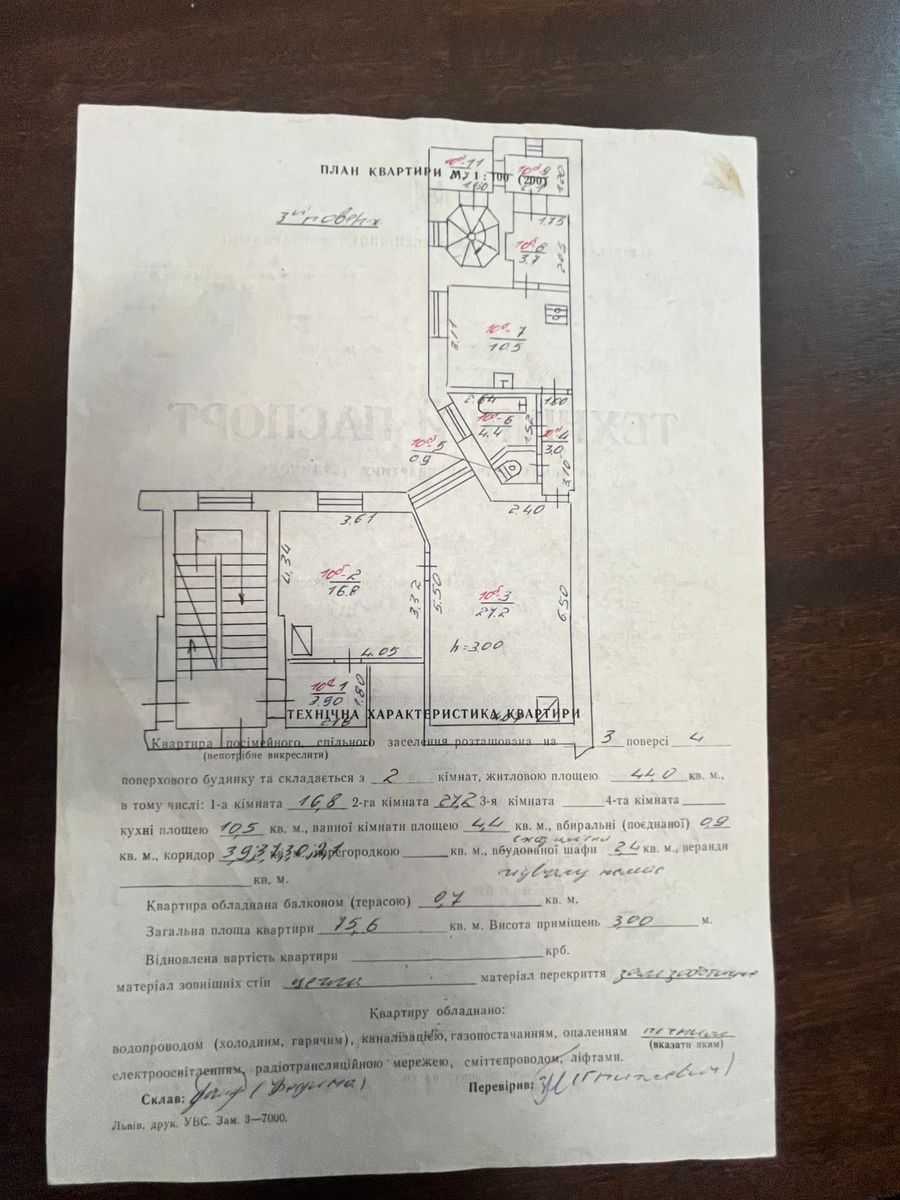 ПЛАН КВАРТИРИ М 1 : 100 (200)
3ий поверх
10а-11
1.60
10а-9
2.1
1.20
1.75
10а-8
3.7
2.05
10а-7
10.5
3.11
2.64
10а-6
4.4
1.52
1.60
10а-4
3.0
3.10
10а-5
0.9
2.40
3.61
4.34
10а-2
16.8
3.32
5.50
10а-3
27.2
6.50
h=3.00
4.05
10а-1
3.90
1.80
2.18
ТЕХНІЧНА ХАРАКТЕРИСТИКА КВАРТИРИ
Квартира посімейного, спільного заселення розташована на 3 поверсі 4
(непотрібне викреслити)
поверхового будинку та складається з 2 кімнат, житловою площею 44,0 кв. м.,
в тому числі: 1-а кімната 16,8 2-га кімната 27,2 3-я кімната 4-та кімната
кухні площею 10,5 кв. м., ванної кімнати площею 4,4 кв. м., вбиральні (поєднаної) 0,9
кв. м., коридор 3,9 3,7 3,0 2,1 перегородкою кв. м., вбудованої шафи 2,4 кв. м., веранди
підвалу немає
кв. м.
Квартира обладнана балконом (терасою) 0,7 кв. м.
Загальна площа квартири 75,6 кв. м. Висота приміщень 3,00 м.
Відновлена вартість квартири крб.
матеріал зовнішніх стін цегла матеріал перекриття залізобетонне
Квартиру обладнано:
водопроводом (холодним, гарячим), каналізацією, газопостачанням, опаленням пічним
(вказати яким)
електроосвітленням, радіотрансляційною мережею, сміттєпроводом, ліфтами.
Склав: Перевірив:
Львів. друк. УВС. Зам. 3—7000.